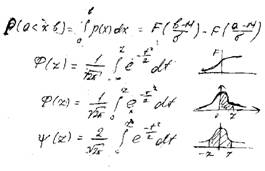 P(a<x<b) = ∫_a^b p(x)dx = F((b-M)/σ) - F((a-M)/σ)
Φ(z) = 1/√2π ∫ e^(-t²/2) dt F
φ(z) = 1/√2π ∫_0^z e^(-t²/2) dt 0 z
ψ(z) = 2/√2π ∫_0^z e^(-t²/2) dt -z z